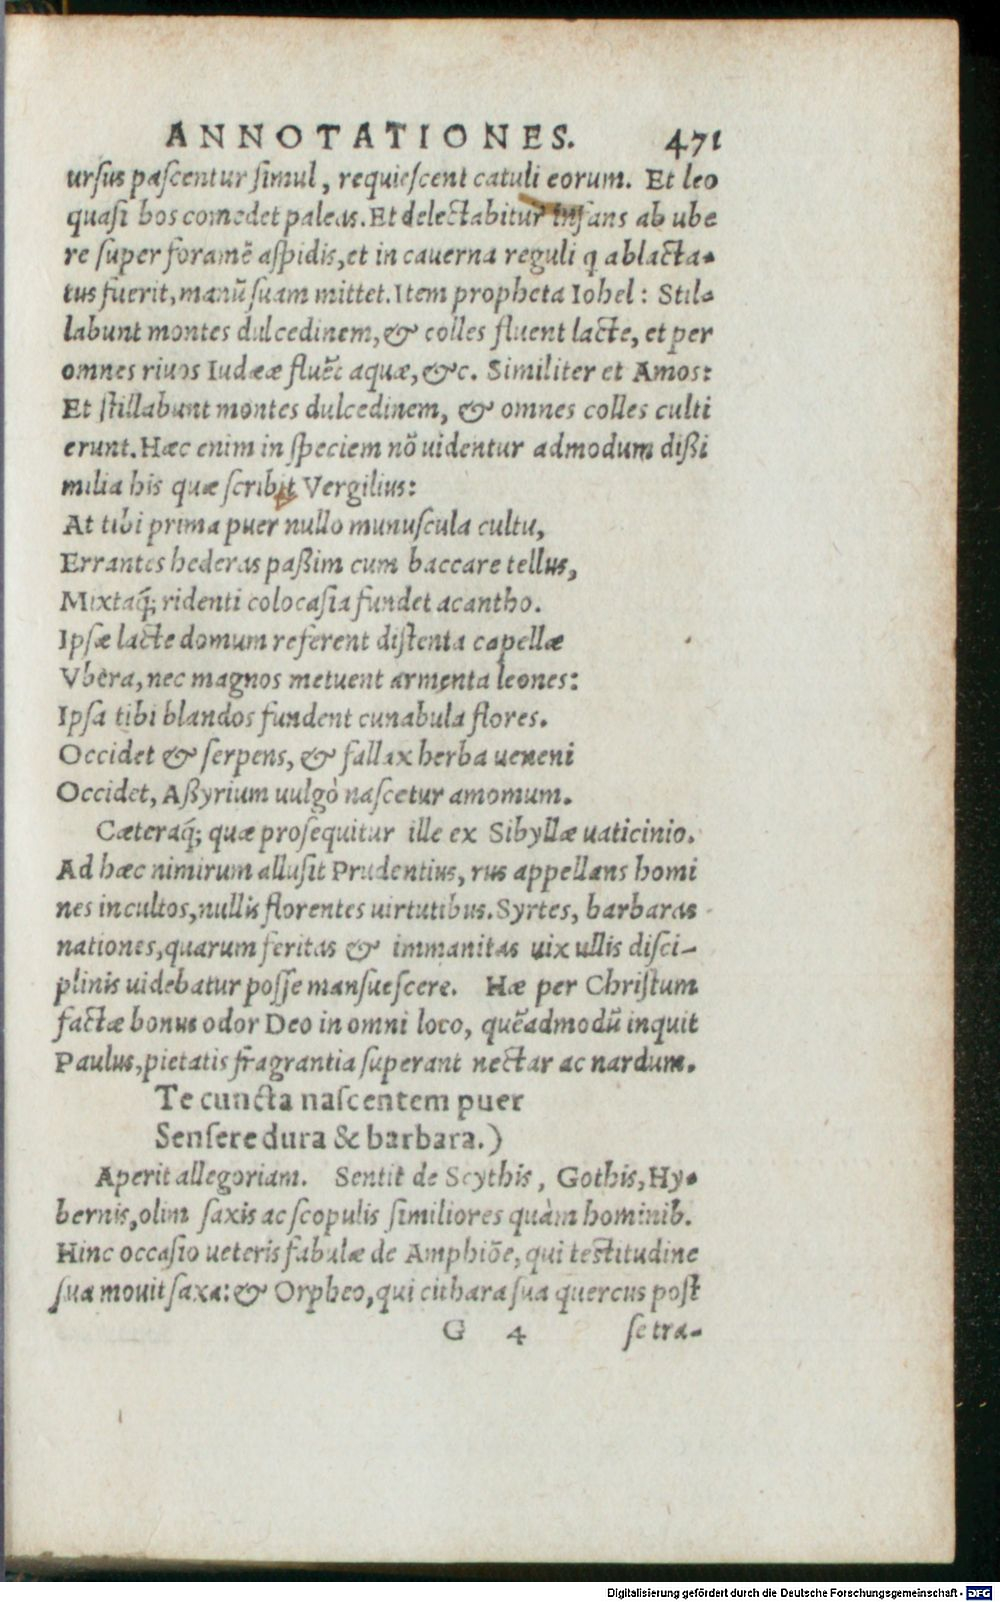 ANNOTATIONES. 471
ursus pascentur simul, requiescent catuli eorum. Et leo
quasi bos comedet paleas. Et delectabitur infans ab ube
re super foramē aspidis, et in cauerna reguli q ablacta-
tus fuerit, manū suam mittet. Item propheta Iohel: Stil-
labunt montes dulcedinem, & colles fluent lacte, et per
omnes riuos Iudææ fluēt aquæ, &c. Similiter et Amos:
Et stillabunt montes dulcedinem, & omnes colles culti
erunt. Hæc enim in speciem nō uidentur admodum dißi
milia his quæ scribit Vergilius:
At tibi prima puer nullo munuscula cultu,
Errantes hederas paßim cum baccare tellus,
Mixtaq́; ridenti colocasia fundet acantho.
Ipsæ lacte domum referent distenta capellæ
Vbera, nec magnos metuent armenta leones:
Ipsa tibi blandos fundent cunabula flores.
Occidet & serpens, & fallax herba ueneni
Occidet, Aßyrium uulgò nascetur amomum.
Cæteraq́; quæ prosequitur ille ex Sibyllæ uaticinio.
Ad hæc nimirum allusit Prudentius, rus appellans homi
nes incultos, nullis florentes uirtutibus. Syrtes, barbaras
nationes, quarum feritas & immanitas uix ullis disci-
plinis uidebatur posse mansuescere. Hæ per Christum
factæ bonus odor Deo in omni loco, quēadmodū inquit
Paulus, pietatis fragrantia superant nectar ac nardum.
Te cuncta nascentem puer
Sensere dura & barbara.)
Aperit allegoriam. Sentit de Scythis, Gothis, Hy-
bernis, olim saxis ac scopulis similiores quàm hominib.
Hinc occasio ueteris fabulæ de Amphiōe, qui testitudine
sua mouit saxa: & Orpheo, qui cithara sua quercus post
G 4 se tra-
Digitalisierung gefördert durch die Deutsche Forschungsgemeinschaft - DFG